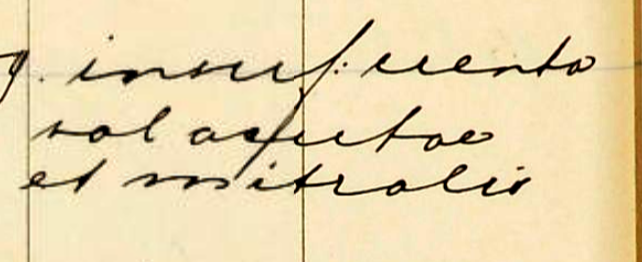 insuf. cuento
val acutae
et mitralis